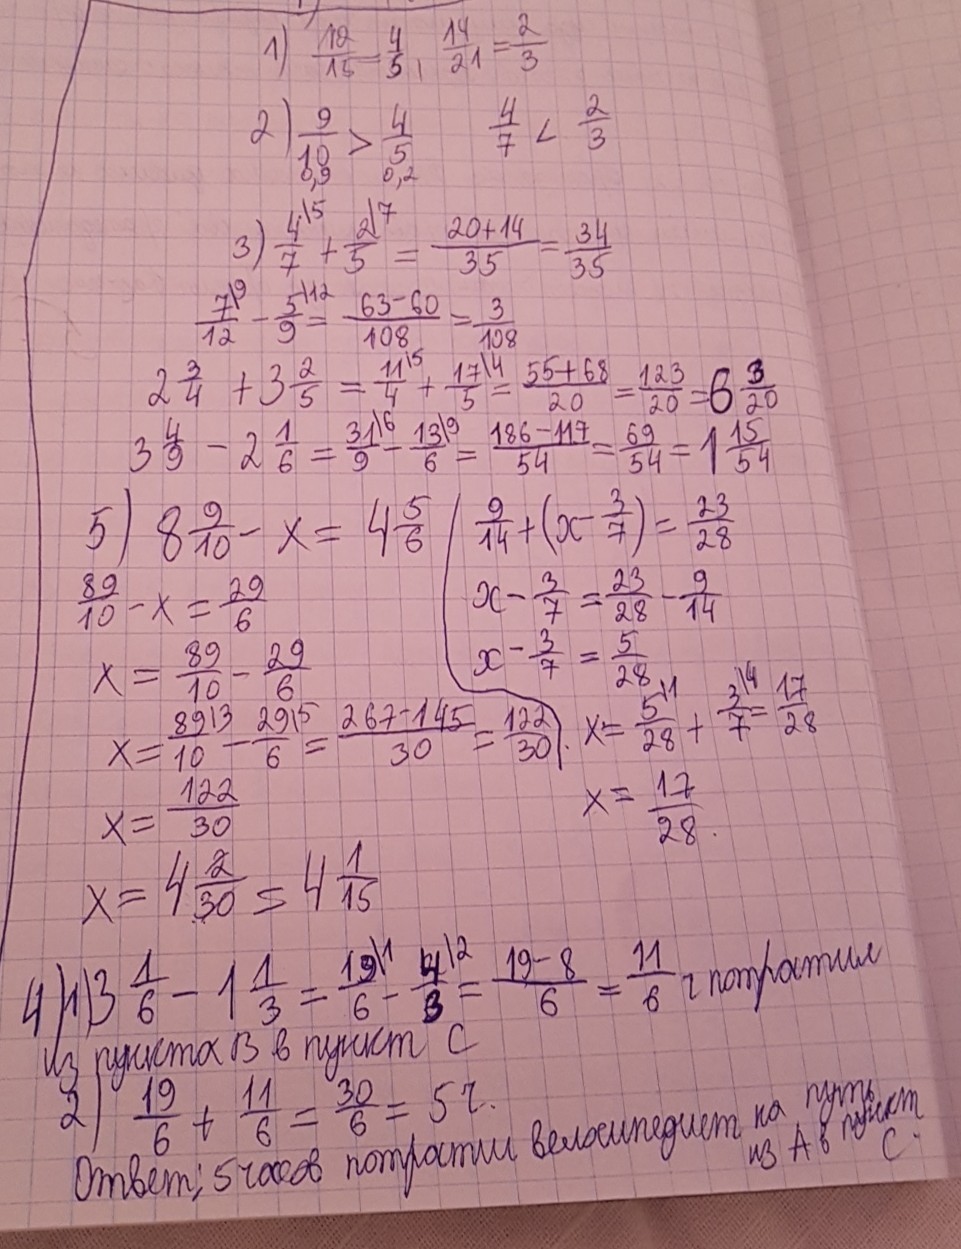 1) 12/15 = 4/5, 14/21 = 2/3
2) 9/10 > 4/5 4/7 < 2/3
0,9 0,2
3) 4/7\5 + 2/5\7 = 20+14/35 = 34/35
7/12\9 - 5/9\12 = 63-60/108 = 3/108
2 3/4 + 3 2/5 = 11/4\5 + 17/5\4 = 55+68/20 = 123/20 = 6 3/20
3 4/9 - 2 1/6 = 31/9\6 - 13/6\9 = 186-117/54 = 69/54 = 1 15/54
5) 8 9/10 - x = 4 5/6
89/10 - x = 29/6
x = 89/10 - 29/6
x = 89/10\3 - 29/6\5 = 267-145/30 = 122/30.
x = 122/30
x = 4 2/30 = 4 1/15
9/14 + (x - 3/7) = 23/28
x - 3/7 = 23/28 - 9/14
x - 3/7 = 5/28
x = 5/28\1 + 3/7\4 = 17/28
x = 17/28.
4) 1) 3 1/6 - 1 1/3 = 19/6\1 - 4/3\2 = 19-8/6 = 11/6 ч потратил
из пункта В в пункт С
2) 19/6 + 11/6 = 30/6 = 5 ч.
Ответ; 5 часов потратил велосипедист на путь
из А в пункт
С.